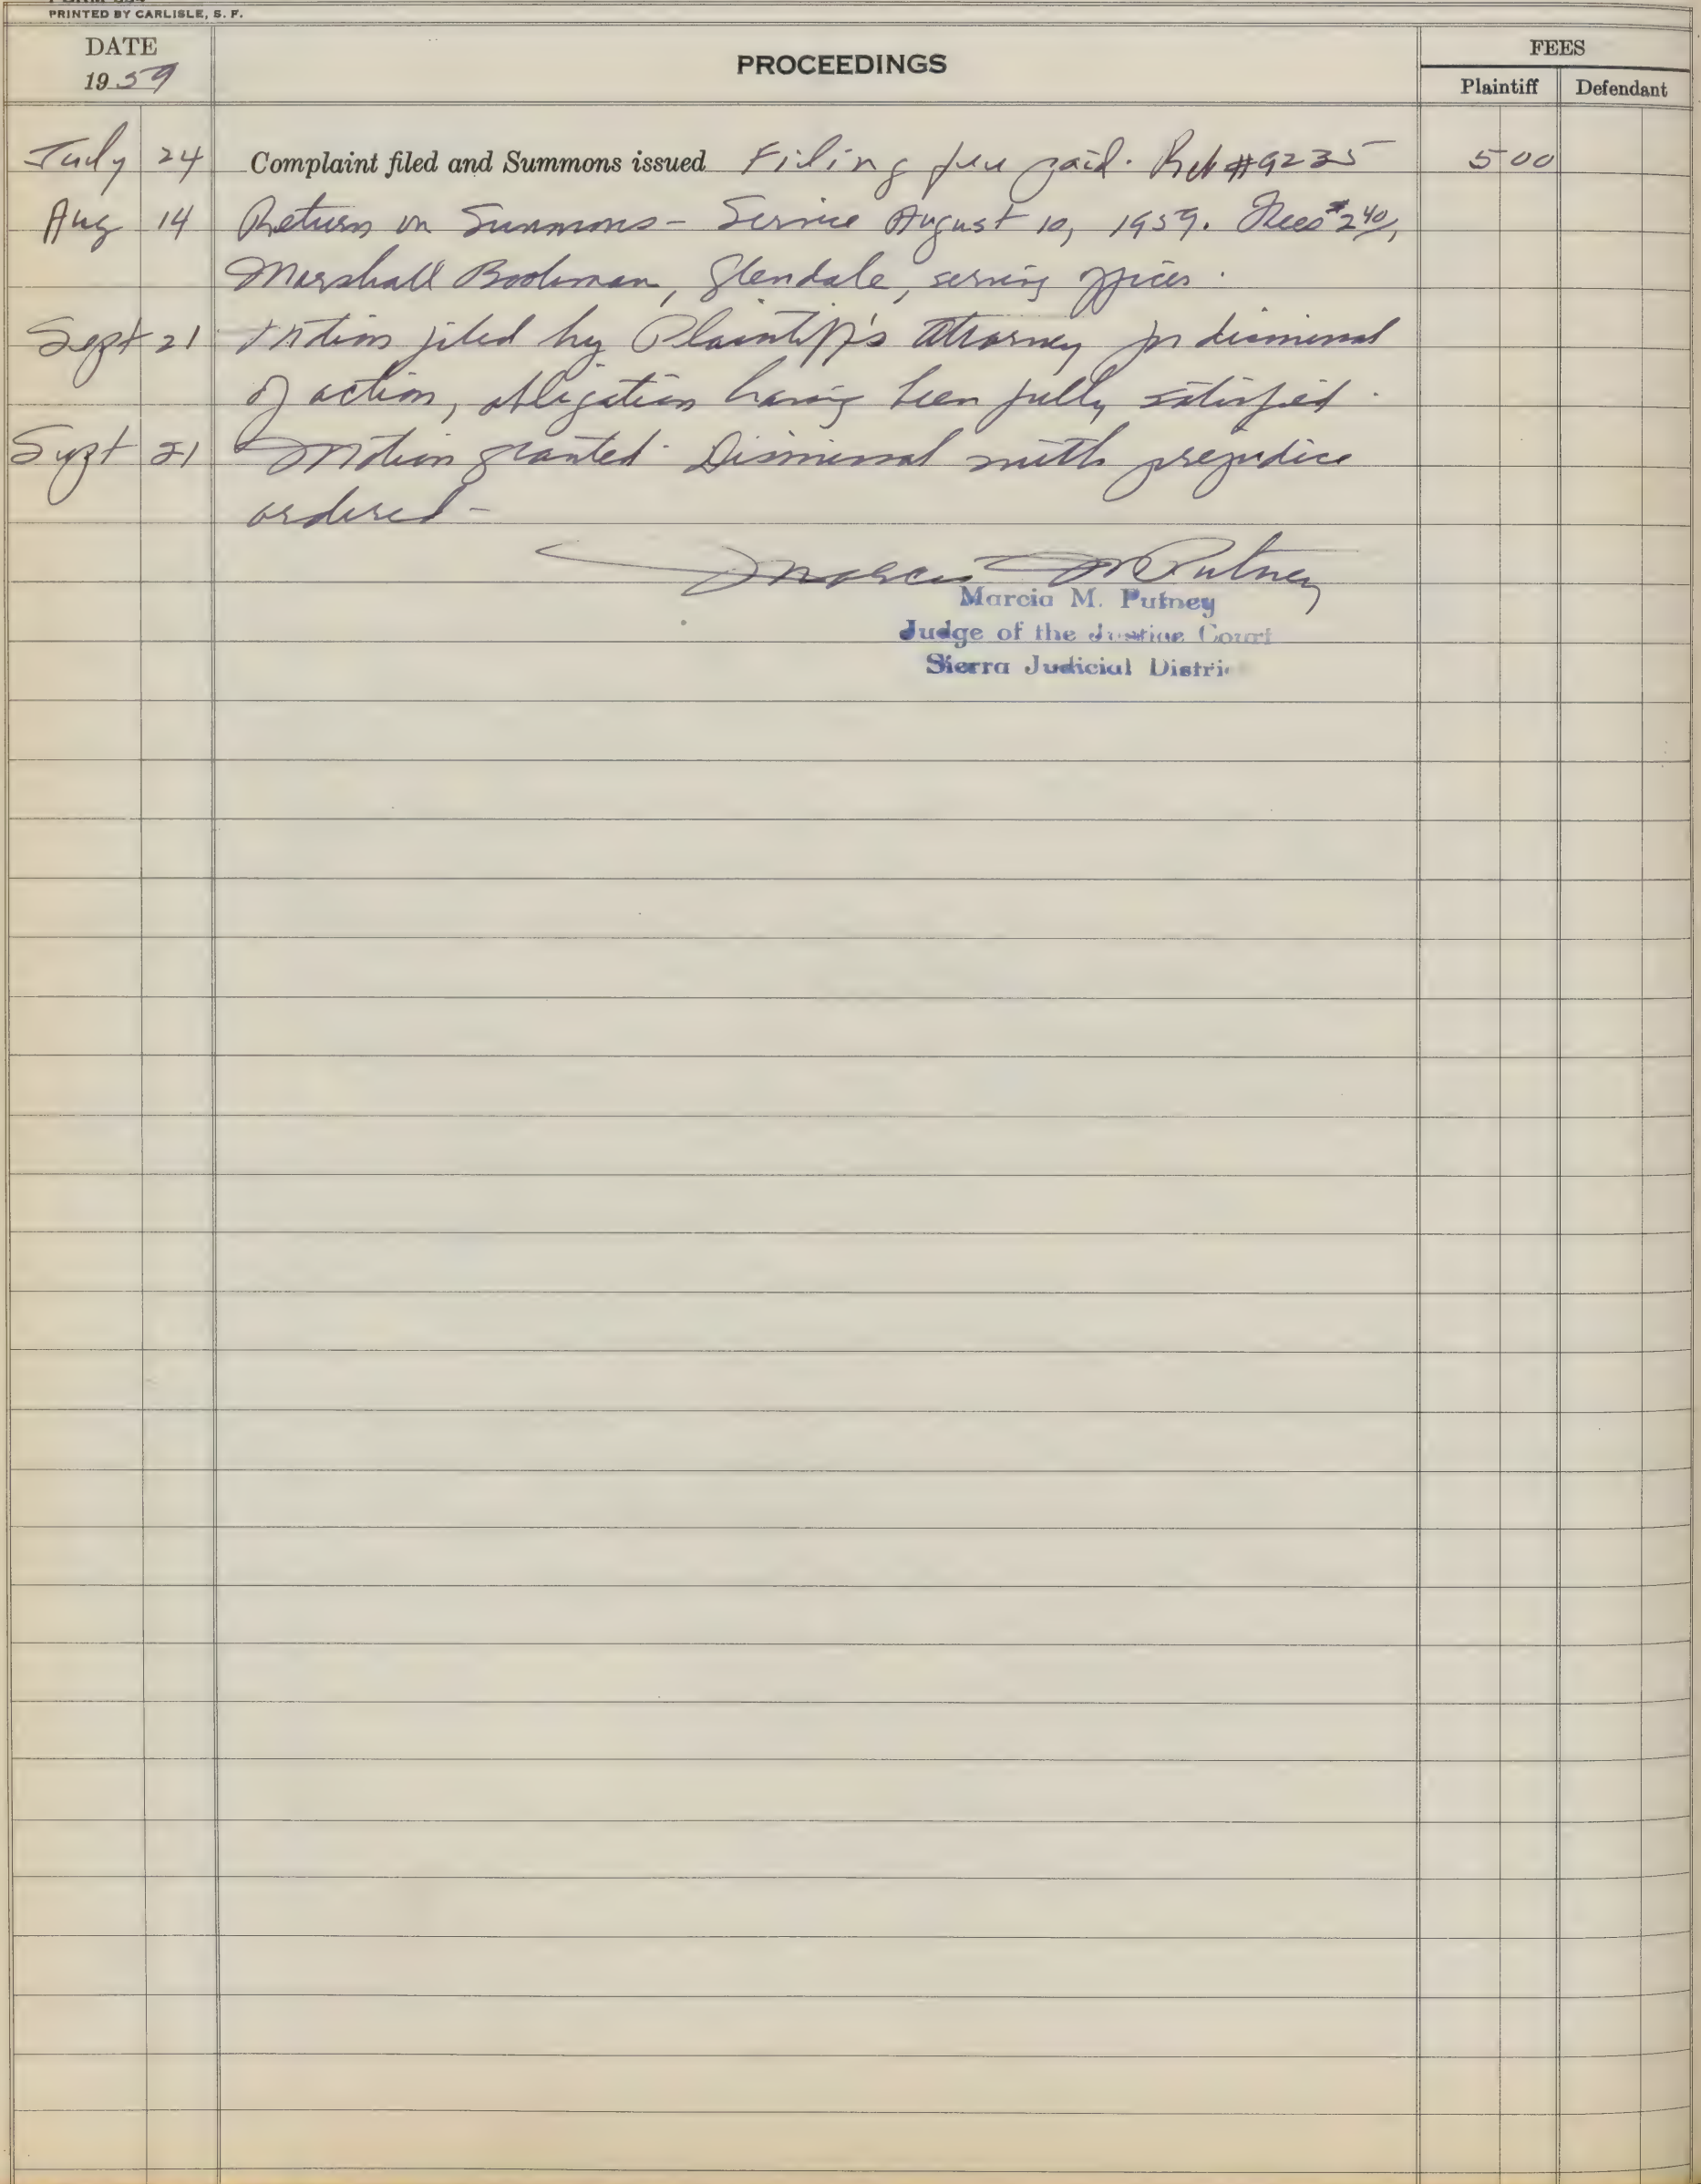 PRINTED BY CARLISLE, S. F.
DATE
1959
PROCEEDINGS
FEES
Plaintiff Defendant
July 24 Complaint filed and Summons issued Filing fee paid. Rct #9235 5 00
Aug 14 Return on Summons - Service August 10, 1959. Fees $2 40,
Marshall Bookman, Glendale, serving officer.
Sept 21 Motion filed by Plaintiff's attorney for dismissal
of action, obligation having been fully satisfied.
Sept 21 Motion granted. Dismissal with prejudice
ordered -
Marcia M Putney
Marcia M. Putney
Judge of the Justice Court
Sierra Judicial Distri